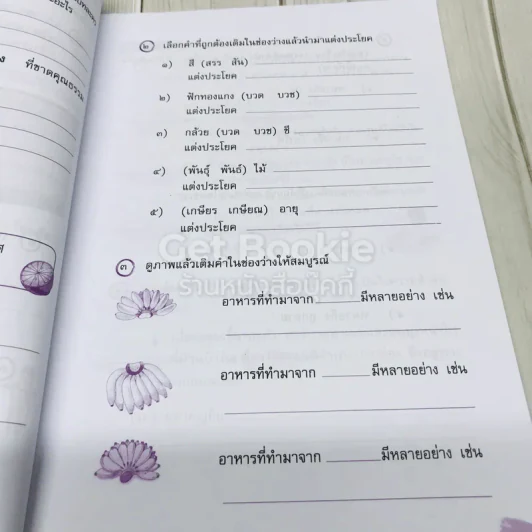 อะไร
ง ที่ขาดคุณธรรม
๒ เลือกคำที่ถูกต้องเติมในช่องว่างแล้วนำมาแต่งประโยค
๑) สี (สรร สัน)
แต่งประโยค
๒) ฟักทองแกง (บวด บวช)
แต่งประโยค
๓) กล้วย (บวด บวช) ชี
แต่งประโยค
๔) (พันธุ์ พันธ์) ไม้
แต่งประโยค
๕) (เกษียร เกษียณ) อายุ
แต่งประโยค
Get Bookie
ร้านหนังสือบุ๊คกี้
๓ ดูภาพแล้วเติมคำในช่องว่างให้สมบูรณ์
อาหารที่ทำมาจาก มีหลายอย่าง เช่น
อาหารที่ทำมาจาก มีหลายอย่าง เช่น
อาหารที่ทำมาจาก มีหลายอย่าง เช่น